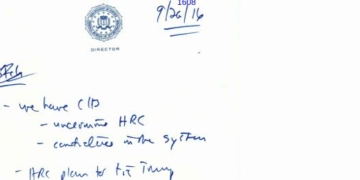 1608
9/26/16
DIRECTOR
- we have CID
- undermine HRC
- candidates in the system
- HRC plan to tie Trump